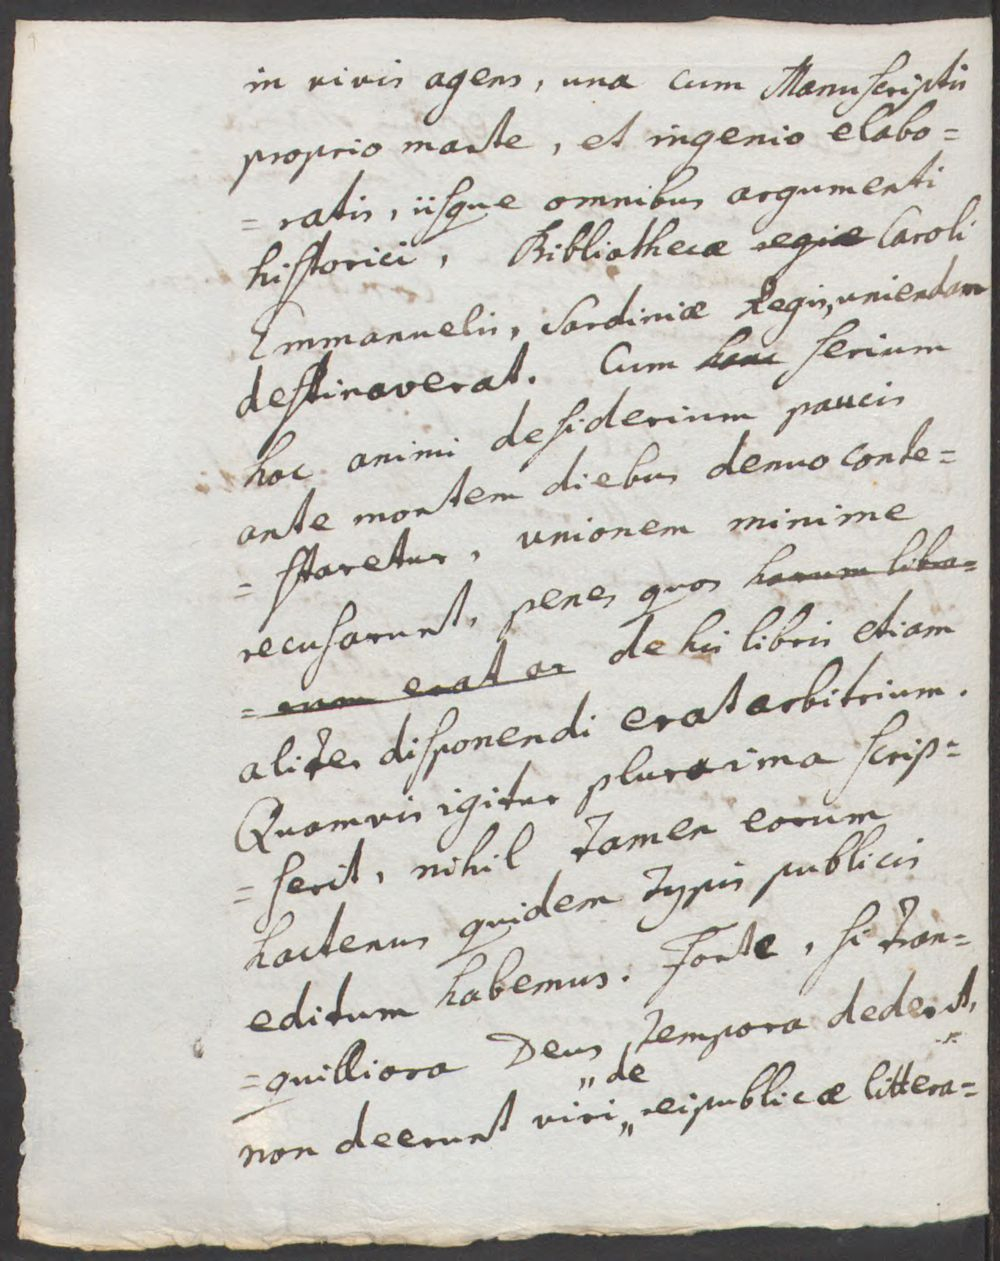 in vivis agens, una cum Manuscriptis
proprio marte, et ingenio elabo=
=ratis, iisque omnibus argumenti
historici, Bibliothecæ regiæ Caroli
Emmanuelis, Sardiniæ Regis, uniendam
destinaverat. Cum hanc serium
hoc animi desiderium paucis
ante mortem diebus denuo conte=
=staretur, unionem minime
recusarunt, penes quos harum libra=
=rum erat ar de his libris etiam
aliter disponendi erat arbitrium.
Quamvis igitur plurima scrip=
=serit, nihil tamen eorum
hactenus quidem typis publicis
editum habemus. Forte, si tran=
=quilliora Deus tempora dederit,
non deerunt viri „de„ reipublicæ littera=